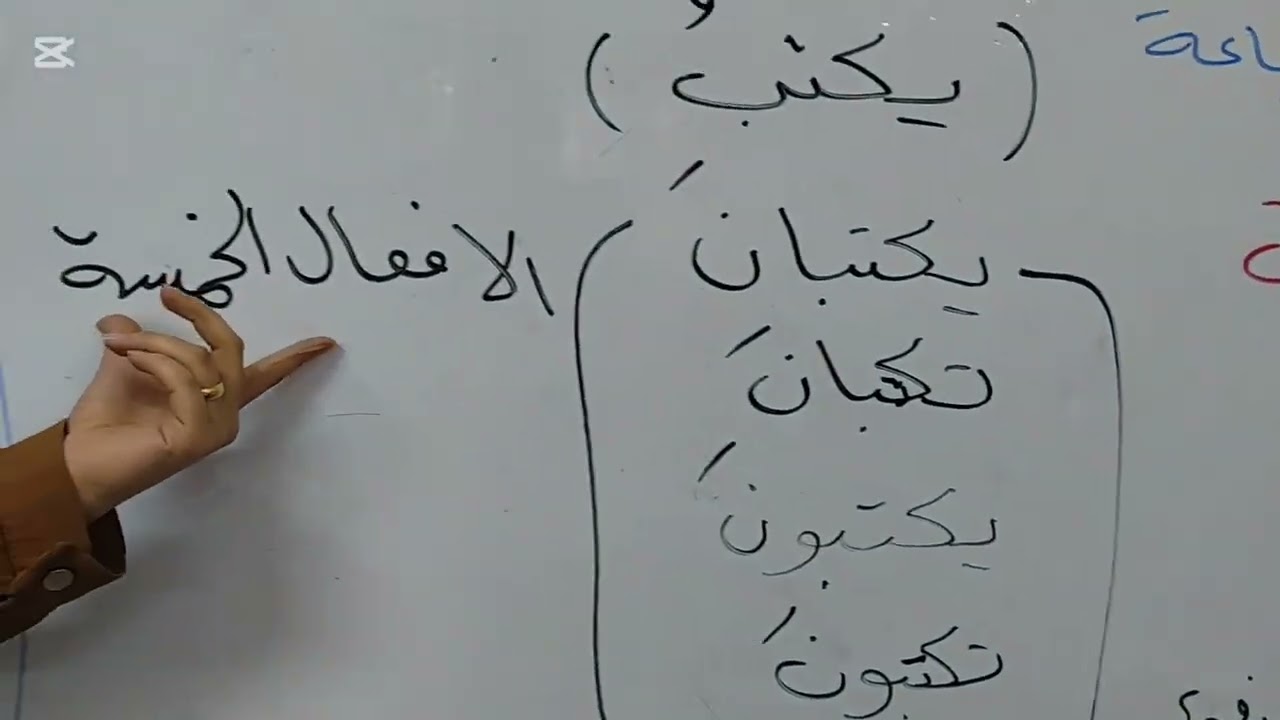 ( يكتبُ )
يكتبانَ
الافعال الخمسة
تكتبانَ
يكتبونَ
تكتبونَ